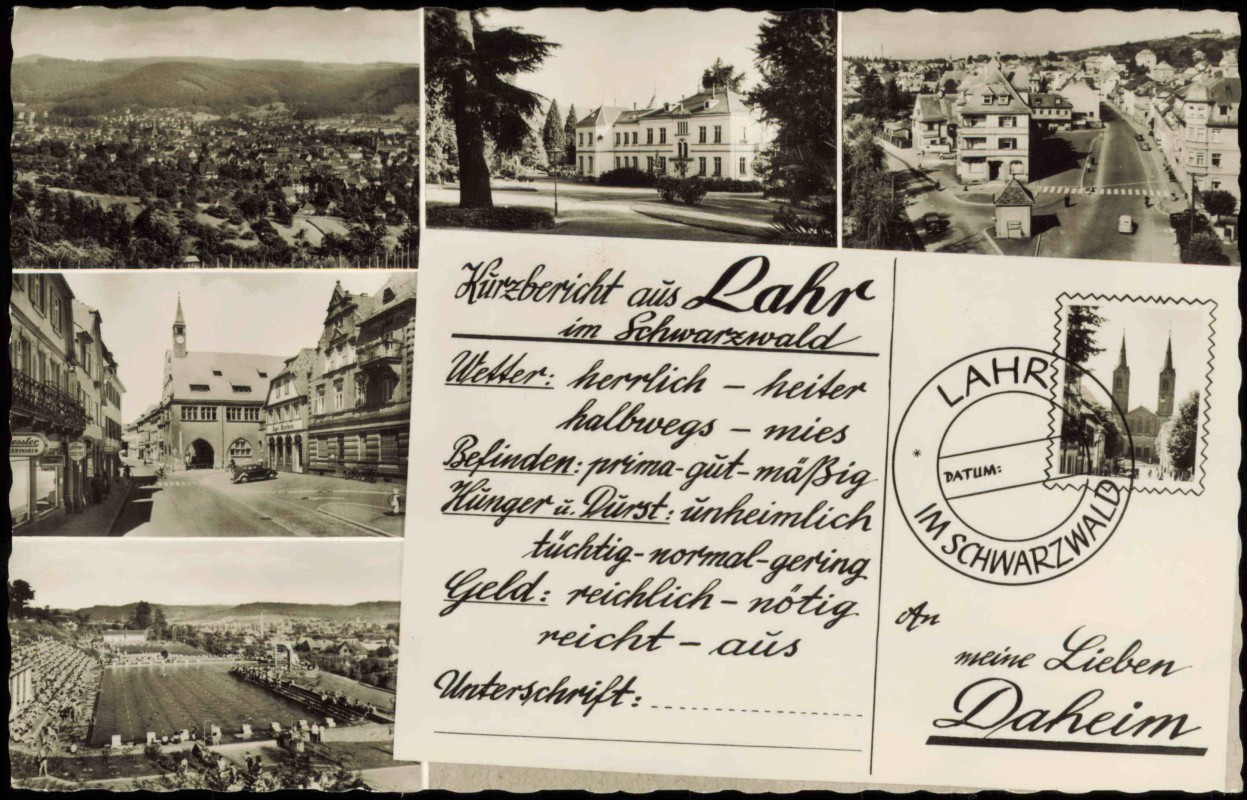 Kurzbericht aus Lahr
im Schwarzwald
Wetter: herrlich – heiter
halbwegs – mies
Befinden: prima - gut - mäßig
Hunger u. Durst: unheimlich
tüchtig - normal - gering
Geld: reichlich – nötig
reicht – aus
Unterschrift:
LAHR
* DATUM:
IM SCHWARZWALD
An
meine Lieben
Daheim